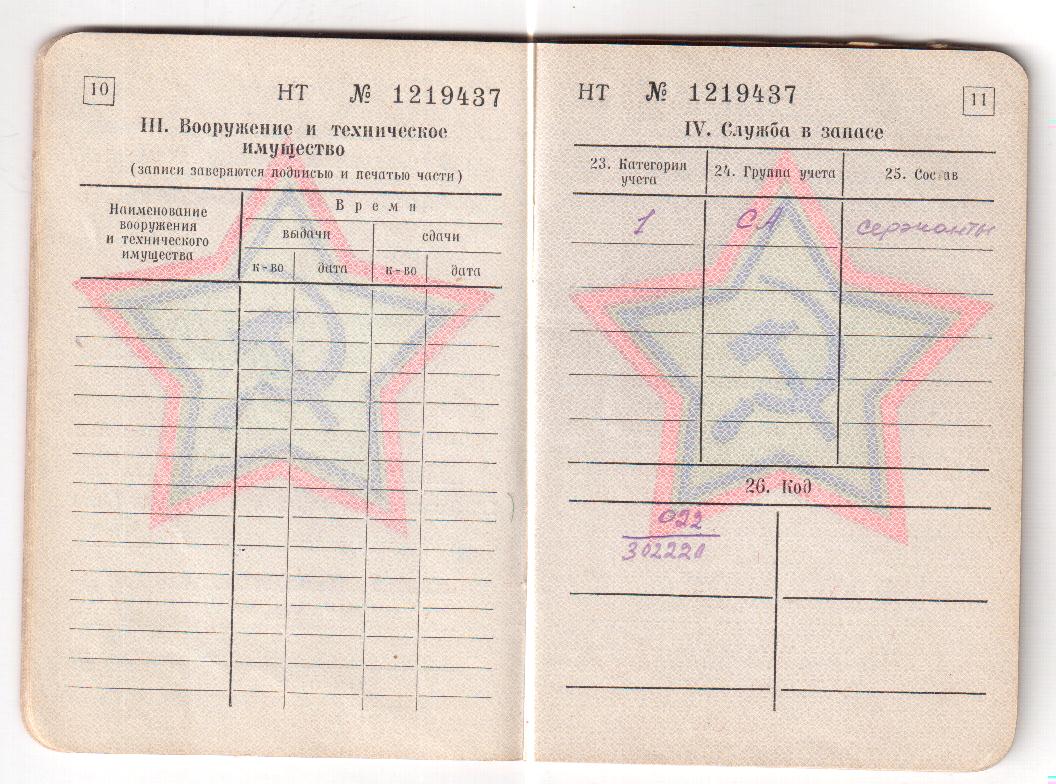 10
НТ № 1219437
III. Вооружение и техническое
имущество
(записи заверяются подписью и печатью части)
Наименование
вооружения
и технического
имущества
Время
выдачи
сдачи
к-во
дата
к-во
дата
НТ № 1219437
11
IV. Служба в запасе
23. Категория
учета
24. Группа учета
25. Состав
1
СА
сержанты
26. Код
022
302220